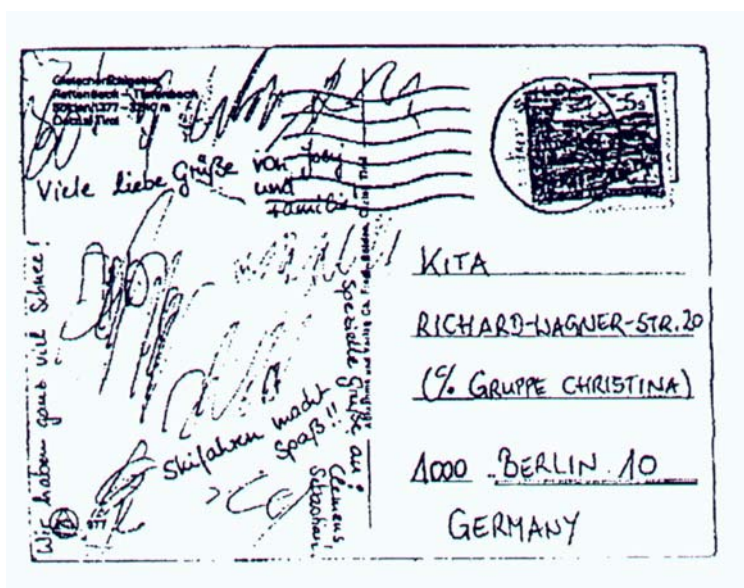 Gletscherskigebiet
Rettenbach - Tiefenbach
Sölden/1377 - 3240 m
Ötztal/Tirol
5s
Viele liebe Grüße von Joby
und
Familie
Wir haben ganz viel Schnee!
Skifahren macht
Spaß!!
Spezielle Grüße an:
Clemens,
Sebastian,
977
KITA
RICHARD-WAGNER-STR. 20
(% GRUPPE CHRISTINA)
1000 BERLIN 10
GERMANY